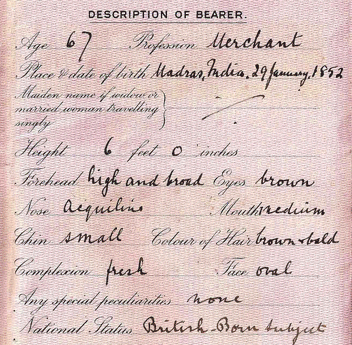 DESCRIPTION OF BEARER.
Age 67 Profession Merchant
Place & date of birth Madras, India, 29 January, 1852
Maiden name if widow or
married woman travelling
singly
Height 6 feet 0 inches
Forehead high and broad Eyes brown
Nose acquiline Mouth medium
Chin small Colour of Hair brown & bald
Complexion fresh Face oval
Any special peculiarities none
National Status British-Born subject